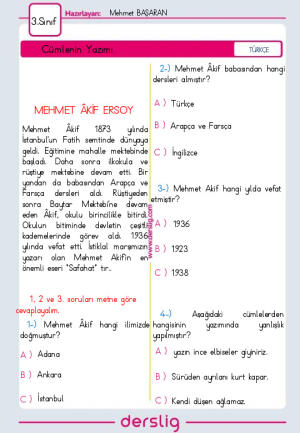 3.Sınıf
Hazırlayan: Mehmet BAŞARAN
Cümlenin Yazımı
TÜRKÇE
MEHMET ÂKİF ERSOY
Mehmet Âkif 1873 yılında
İstanbul'un Fatih semtinde dünyaya
geldi. Eğitimine mahalle mektebinde
başladı. Daha sonra ilkokula ve
rüştiye mektebine devam etti. Bir
yandan da babasından Arapça ve
Farsça dersleri aldı. Rüştiyeden
sonra Baytar Mektebi'ne devam
eden Âkif, okulu birincilikle bitirdi.
Okulun bitiminde devletin çeşitli
kademelerinde görev aldı. 1936
yılında vefat etti. İstiklal marşımızın
yazarı olan Mehmet Akif'in en
önemli eseri "Safahat" tır..
1, 2 ve 3. soruları metne göre
cevaplayalım.
1-) Mehmet Âkif hangi ilimizde
doğmuştur?
A ) Adana
B ) Ankara
C ) İstanbul
www.derslig.com
2-) Mehmet Âkif babasından hangi
dersleri almıştır?
A ) Türkçe
B ) Arapça ve Farsça
C ) İngilizce
3-) Mehmet Akif hangi yılda vefat
etmiştir?
A ) 1936
B ) 1923
C ) 1938
4-) Aşağıdaki cümlelerden
hangisinin yazımında yanlışlık
yapılmıştır?
A ) yazın ince elbiseler giyiniriz.
B ) Sürüden ayrılanı kurt kapar.
C ) Kendi düşen ağlamaz.
derslig